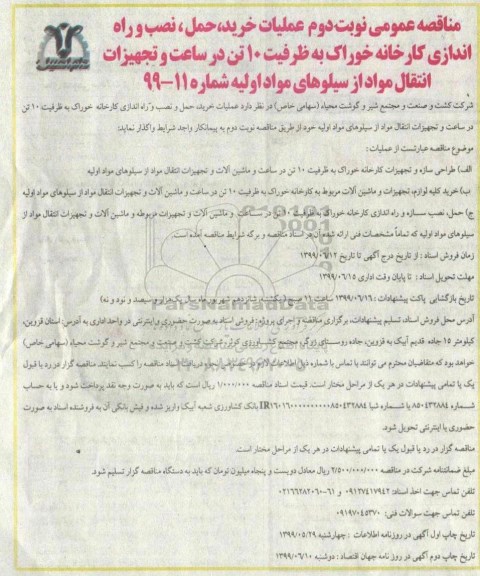 مناقصه عمومی نوبت دوم عملیات خرید،حمل ، نصب و راه
اندازی کارخانه خوراک به ظرفیت ۱۰ تن در ساعت و تجهیزات
انتقال مواد از سیلوهای مواد اولیه شماره ۱۱-۹۹
شرکت کشت و صنعت و مجتمع شیر و گوشت محیاه (سهامی خاص) در نظر دارد عملیات خرید، حمل و نصب و راه اندازی کارخانه خوراک به ظرفیت ۱۰ تن
در ساعت و تجهیزات انتقال مواد از سیلوهای مواد اولیه خود از طریق مناقصه نوبت دوم به پیمانکار واجد شرایط واگذار نماید:
موضوع مناقصه عبارتست از عملیات :
الف) طراحی سازه و تجهیزات کارخانه خوراک به ظرفیت ۱۰ تن در ساعت و ماشین آلات و تجهیزات انتقال مواد از سیلوهای مواد اولیه
ب) خرید کلیه لوازم، تجهیزات و ماشین آلات مربوط به کارخانه خوراک به ظرفیت ۱۰ تن در ساعت و ماشین آلات و تجهیزات انتقال مواد از سیلوهای مواد اولیه
ج) حمل، نصب سازه و راه اندازی کارخانه خوراک به ظرفیت ۱۰ تن در ساعت و ماشین آلات و تجهیزات مربوطه و ماشین آلات و تجهیزات انتقال مواد از
سیلوهای مواد اولیه که تماماً مشخصات فنی ارائه شده آن در اسناد مناقصه و برگه شرایط مناقصه آمده است.
زمان فروش اسناد : از تاریخ درج آگهی تا تاریخ ۱۳۹۹/۰۶/۱۲
مهلت تحویل اسناد : تا پایان وقت اداری ۱۳۹۹/۰۶/۱۵
تاریخ بازگشایی پاکت پیشنهادات : ۱۳۹۹/۰۶/۱۶ ساعت ۱۱ صبح (یکشنبه شانزدهم شهریور ماه سال یک هزار و سیصد و نود و نه)
آدرس محل فروش اسناد، تسلیم پیشنهادات، برگزاری مناقصه و اجرای پروژه: فروش اسناد به صورت حضوری و اینترنتی در واحد اداری به آدرس: استان قزوین،
کیلومتر ۱۵ جاده قدیم آبیک به قزوین، جاده روستای زرگر، مجتمع کشاورزی کوثر، شرکت کشت و صنعت و مجتمع شیر و گوشت محیاه (سهامی خاص)
خواهد بود که متقاضیان محترم می توانند با تماس با شماره ذیل اطلاعات لازم در خصوص نحوه دریافت اسناد مناقصه را کسب نمایند. مناقصه گزار در رد یا قبول
یک یا تمامی پیشنهادات در هر یک از مراحل مختار است. قیمت اسناد مناقصه ۱/۰۰۰/۰۰۰ ریال است که باید به صورت وجه نقد پرداخت شود و یا به حساب
شماره ۸۵۰۴۳۲۸۸۴ یا شماره شبا بانک کشاورزی شعبه آبیک واریز شده و فیش بانکی آن به فروشنده اسناد به صورت
حضوری یا اینترنتی تحویل شود.
مناقصه گزار در رد یا قبول یک یا تمامی پیشنهادات در هر یک از مراحل مختار است.
مبلغ ضمانتنامه شرکت در مناقصه ۲/۵۰۰/۰۰۰/۰۰۰ ریال معادل دویست و پنجاه میلیون تومان که باید به دستگاه مناقصه گزار تسلیم شود.
تلفن تماس جهت اخذ اسناد: ۰۹۱۲۷۴۱۷۹۴۲ و ۶۱-۰۲۱۶۶۲۸۲۰۶۰
تلفن تماس جهت سوالات فنی: ۰۹۱۹۷۰۴۵۳۷۰
تاریخ چاپ اول آگهی در روزنامه اطلاعات : چهارشنبه ۱۳۹۹/۰۵/۲۹
تاریخ چاپ دوم آگهی در روز نامه جهان اقتصاد : دوشنبه ۱۳۹۹/۰۶/۱۰